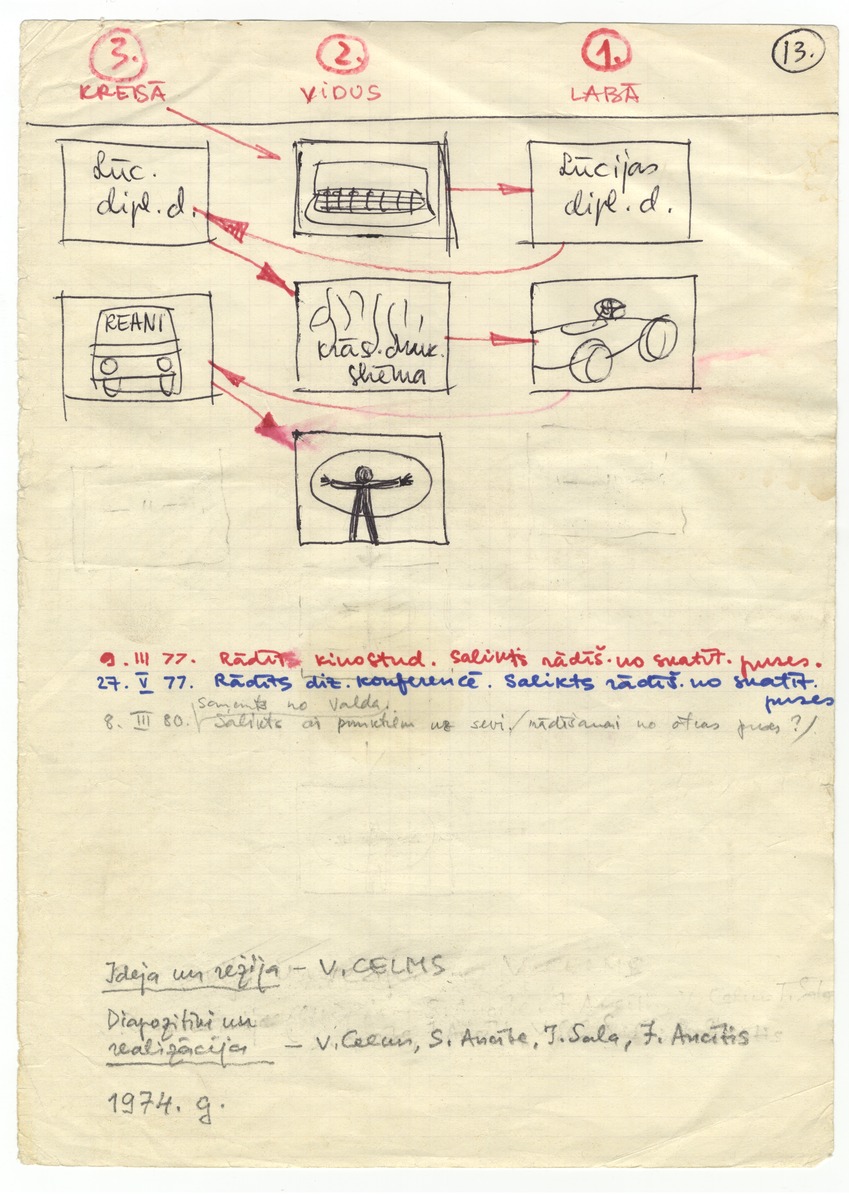 3. 2. 1. 13.
KREISĀ VIDUS LABĀ
Lūc.
dipl. d.
Lūcijas
dipl. d.
REANI
krās. druk.
shēma
9. III 77. Rādīts kinostud. Salikts rādīš. no skatīt. puses.
27. V 77. Rādīts diz. konferencē. Salikts rādīš. no skatīt.
puses
saņemts no Valda.
8. III 80. Salikts ar punktiem uz sevi / rādīšanai no otras puses?/
Ideja un režija – V. CELMS
Diapozitīvi un
realizācija – V. Celms, S. Ancīte, J. Sala, J. Ancītis
1974. g.